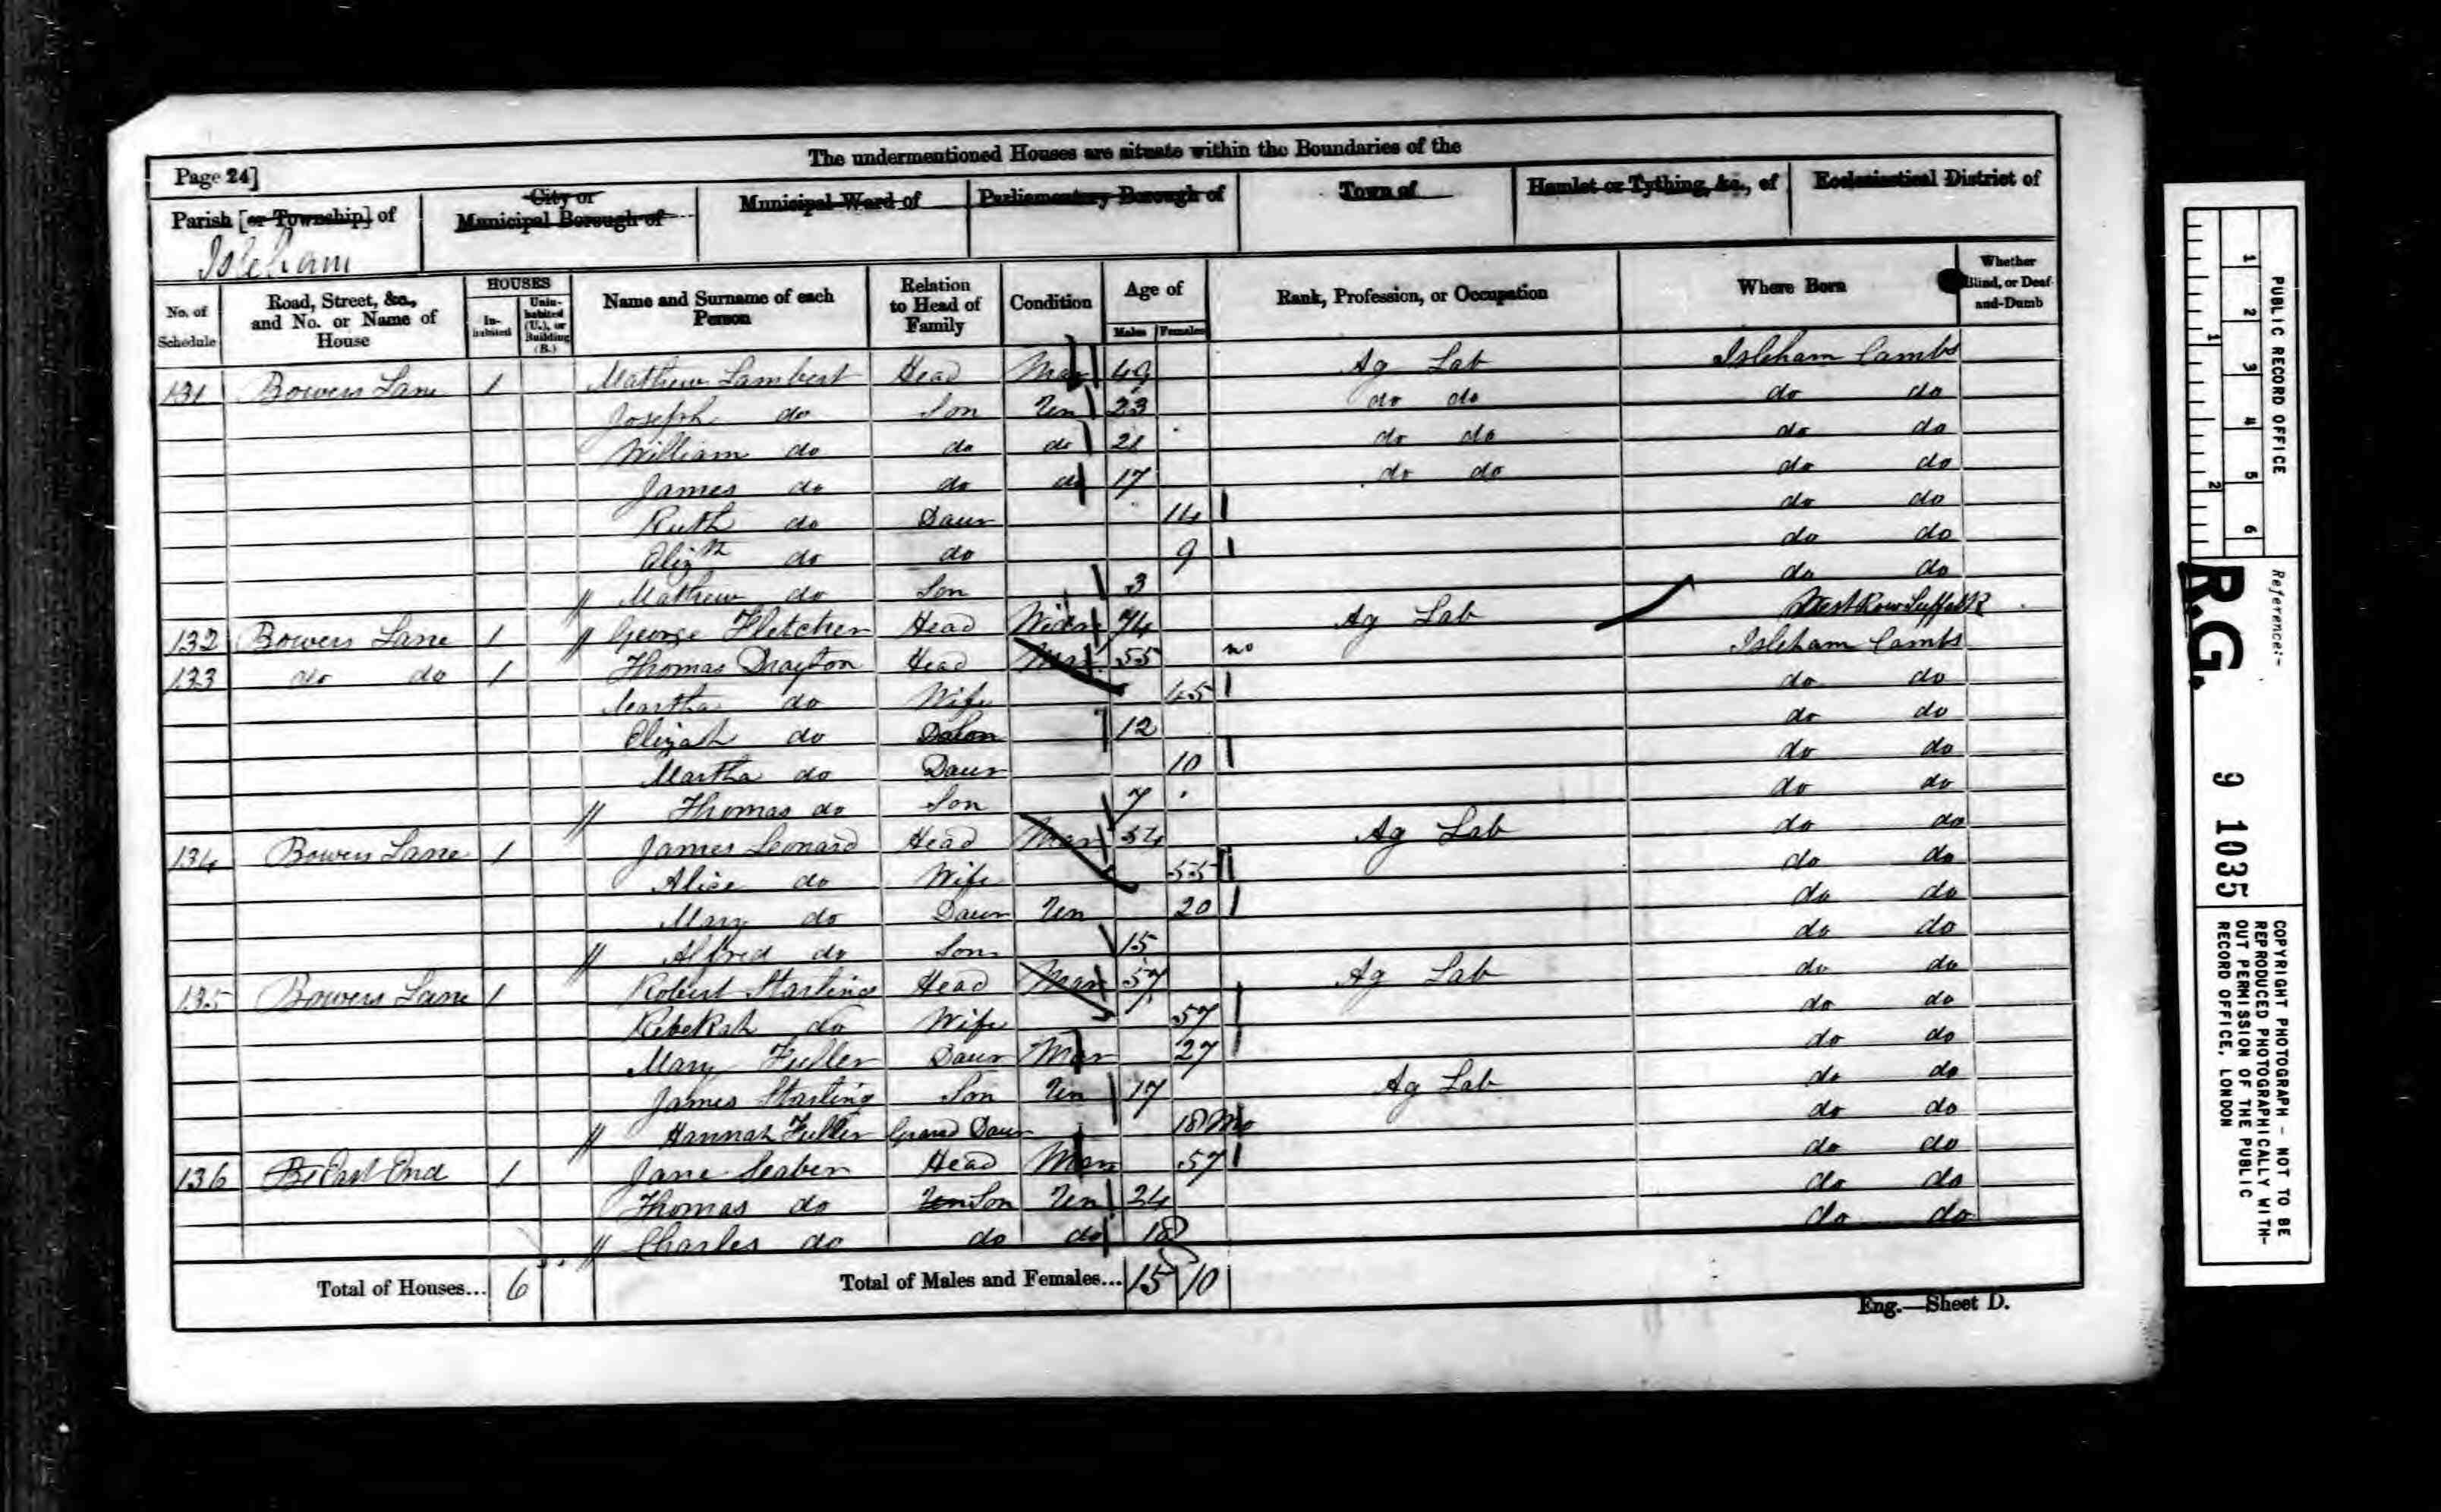 The undermentioned Houses are situate within the Boundaries of the
Page 24]
Parish [or Township] of
Isleham
City or Municipal Borough of
Municipal Ward of
Parliamentary Borough of
Town of
Hamlet or Tything, &c., of
Ecclesiastical District of
No. of Schedule
Road, Street, &c., and No. or Name of House
HOUSES
In-habited
Unin-habited (U.), or Building (B.)
Name and Surname of each Person
Relation to Head of Family
Condition
Age of
Males Females
Rank, Profession, or Occupation
Where Born
Whether Blind, or Deaf-and-Dumb
131 Bowers Lane 1 Mathew Lambert Head Mar 49 Ag Lab Isleham Cambs
Joseph do Son Un 23 do do do do
William do do do 21 do do do do
James do do do 17 do do do do
Ruth do Daur 14 do do
Elizth do do 9 do do
Mathew do Son 3 do do
132 Bowers Lane 1 George Fletcher Head 74 Ag Lab West Row Suffolk
133 do do 1 Thomas Drayton Head Mar 55 no Isleham Cambs
Martha do Wife 45 do do
Elizah do Son 12 do do
Martha do Daur 10 do do
Thomas do Son 7 do do
134 Bowers Lane 1 James Leonard Head Mar 54 Ag Lab do do
Alice do Wife 55 do do
Mary do Daur Un 20 do do
Alfred do Son 15 do do
135 Bowers Lane 1 Robert Starling Head Mar 57 Ag Lab do do
Rebekah do Wife 57 do do
Mary Fuller Daur Mar 27 do do
James Starling Son Un 17 Ag Lab do do
Hannah Fuller Grand Daur 18 Mo do do
136 East End 1 Jane Seaber Head Mar 57 do do
Thomas do Un Son Un 24 do do
Charles do do do 18 do do
Total of Houses... 6 Total of Males and Females... 15 10
Eng.—Sheet D.
PUBLIC RECORD OFFICE
1 2 3 4 5 6
1 2
Reference:-
R.G. 9 1035
COPYRIGHT PHOTOGRAPH - NOT TO BE REPRODUCED PHOTOGRAPHICALLY WITH-OUT PERMISSION OF THE PUBLIC RECORD OFFICE, LONDON